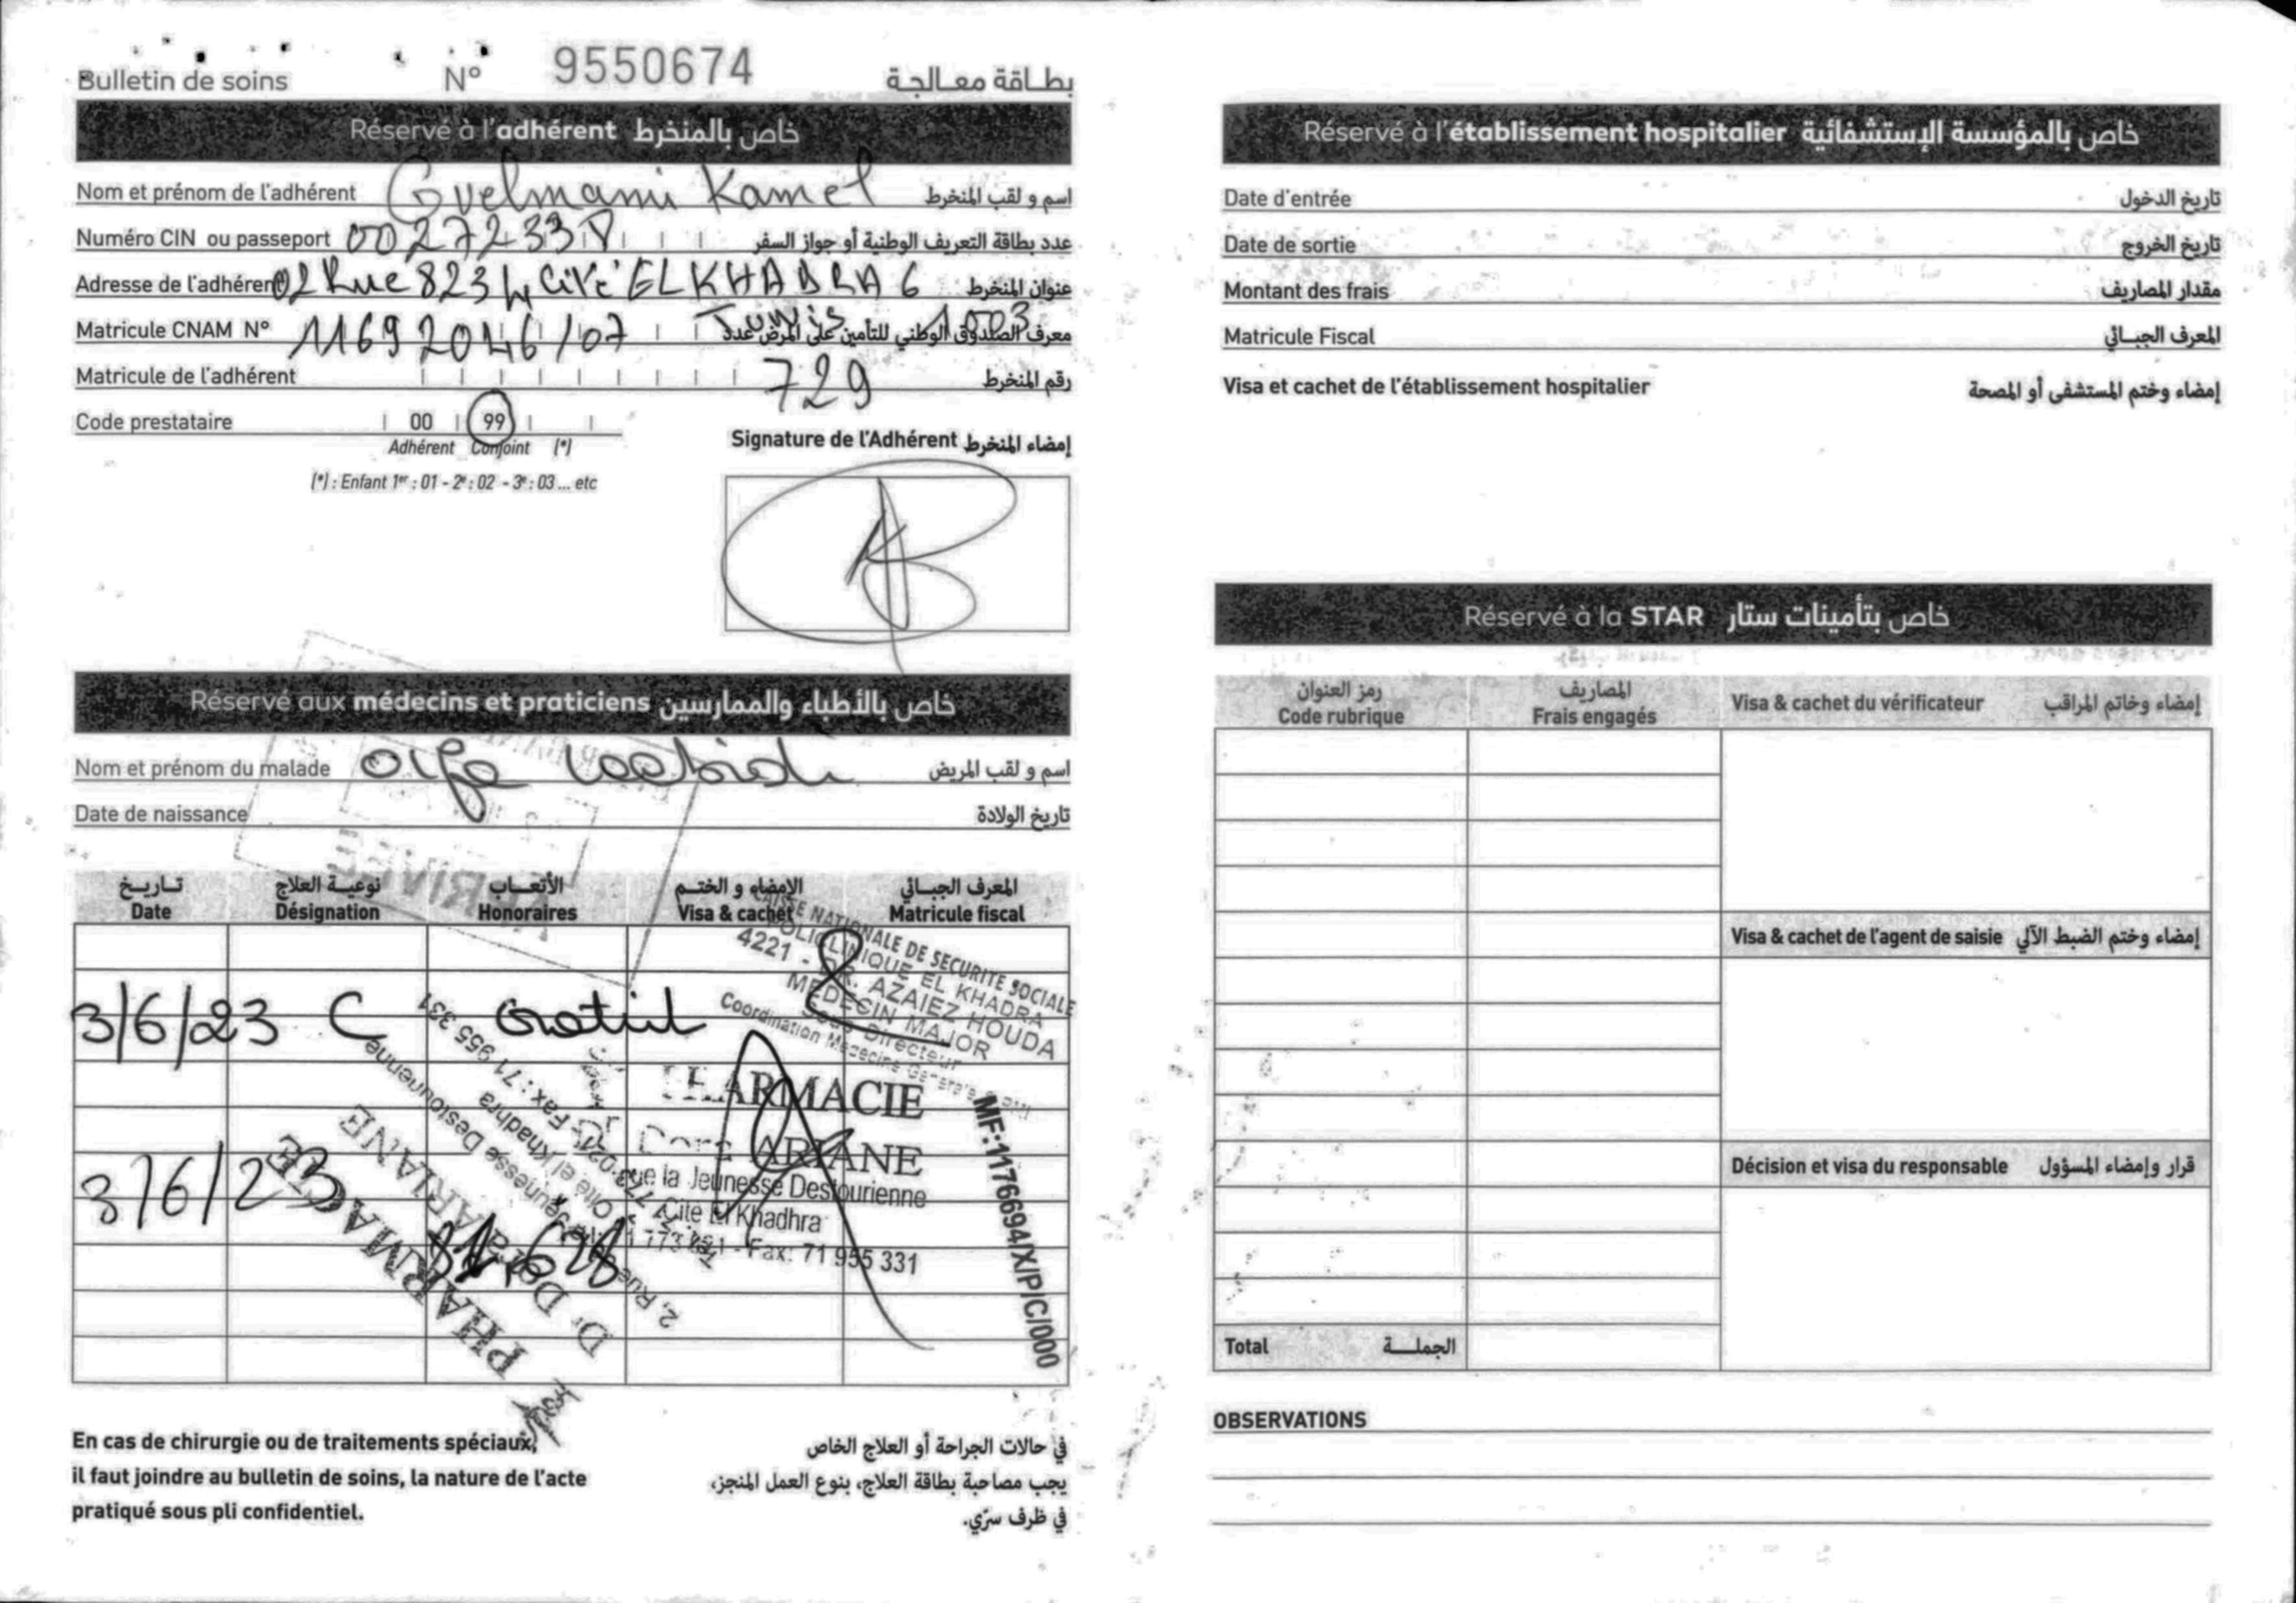 Bulletin de soins N° 9550674 بطاقة معالجة
Réservé à l'adhérent خاص بالمنخرط
Nom et prénom de l'adhérent Guelmami Kamel اسم و لقب المنخرط
Numéro CIN ou passeport 00272338 عدد بطاقة التعريف الوطنية أو جواز السفر
Adresse de l'adhérent 02 Rue 8234 Cité ELKHADRA 6 عنوان المنخرط
Tunis 1003
Matricule CNAM N° 11692046/07 معرف الصندوق الوطني للتأمين على المرض عدد
Matricule de l'adhérent 729 رقم المنخرط
Code prestataire 00 99
Adhérent Conjoint (*)
(*) : Enfant 1er : 01 - 2e : 02 - 3e : 03 ... etc
Signature de l'Adhérent إمضاء المنخرط
Réservé aux médecins et praticiens خاص بالأطباء والممارسين
Nom et prénom du malade Olfa اسم و لقب المريض
Date de naissance تاريخ الولادة
تاريخ نوعية العلاج الأتعاب الإمضاء و الختم المعرف الجبائي
Date Désignation Honoraires Visa & cachet Matricule fiscal
ARRIVEE
CAISSE NATIONALE DE SECURITE SOCIALE
POLICLINIQUE EL KHADRA
4221 - DR. AZAIEZ HOUDA
MEDECIN MAJOR
Sous Directeur
Coordination Médecine Générale
3/6/23 C Gratuit
PHARMACIE
Dora ARIANE
Rue la Jeunesse Destourienne
Cité El Khadhra
Fax: 71 955 331
MF:1176694/X/P/C/000
3/6/23
PHARMACIE
Dr Dora ARIANE
2, Rue la Jeunesse Destourienne
Cité el Khadhra
Tél: 71 773.021 - Fax: 71 955 331
En cas de chirurgie ou de traitements spéciaux,
il faut joindre au bulletin de soins, la nature de l'acte
pratiqué sous pli confidentiel.
في حالات الجراحة أو العلاج الخاص
يجب مصاحبة بطاقة العلاج، بنوع العمل المنجز،
في ظرف سرّي.
Réservé à l'établissement hospitalier خاص بالمؤسسة الإستشفائية
Date d'entrée تاريخ الدخول
Date de sortie تاريخ الخروج
Montant des frais مقدار المصاريف
Matricule Fiscal المعرف الجبائي
Visa et cachet de l'établissement hospitalier إمضاء وختم المستشفى أو المصحة
Réservé à la STAR خاص بتأمينات ستار
رمز العنوان المصاريف
Code rubrique Frais engagés Visa & cachet du vérificateur إمضاء وخاتم المراقب
Visa & cachet de l'agent de saisie إمضاء وختم الضبط الآلي
Décision et visa du responsable قرار وإمضاء المسؤول
Total الجملة
OBSERVATIONS